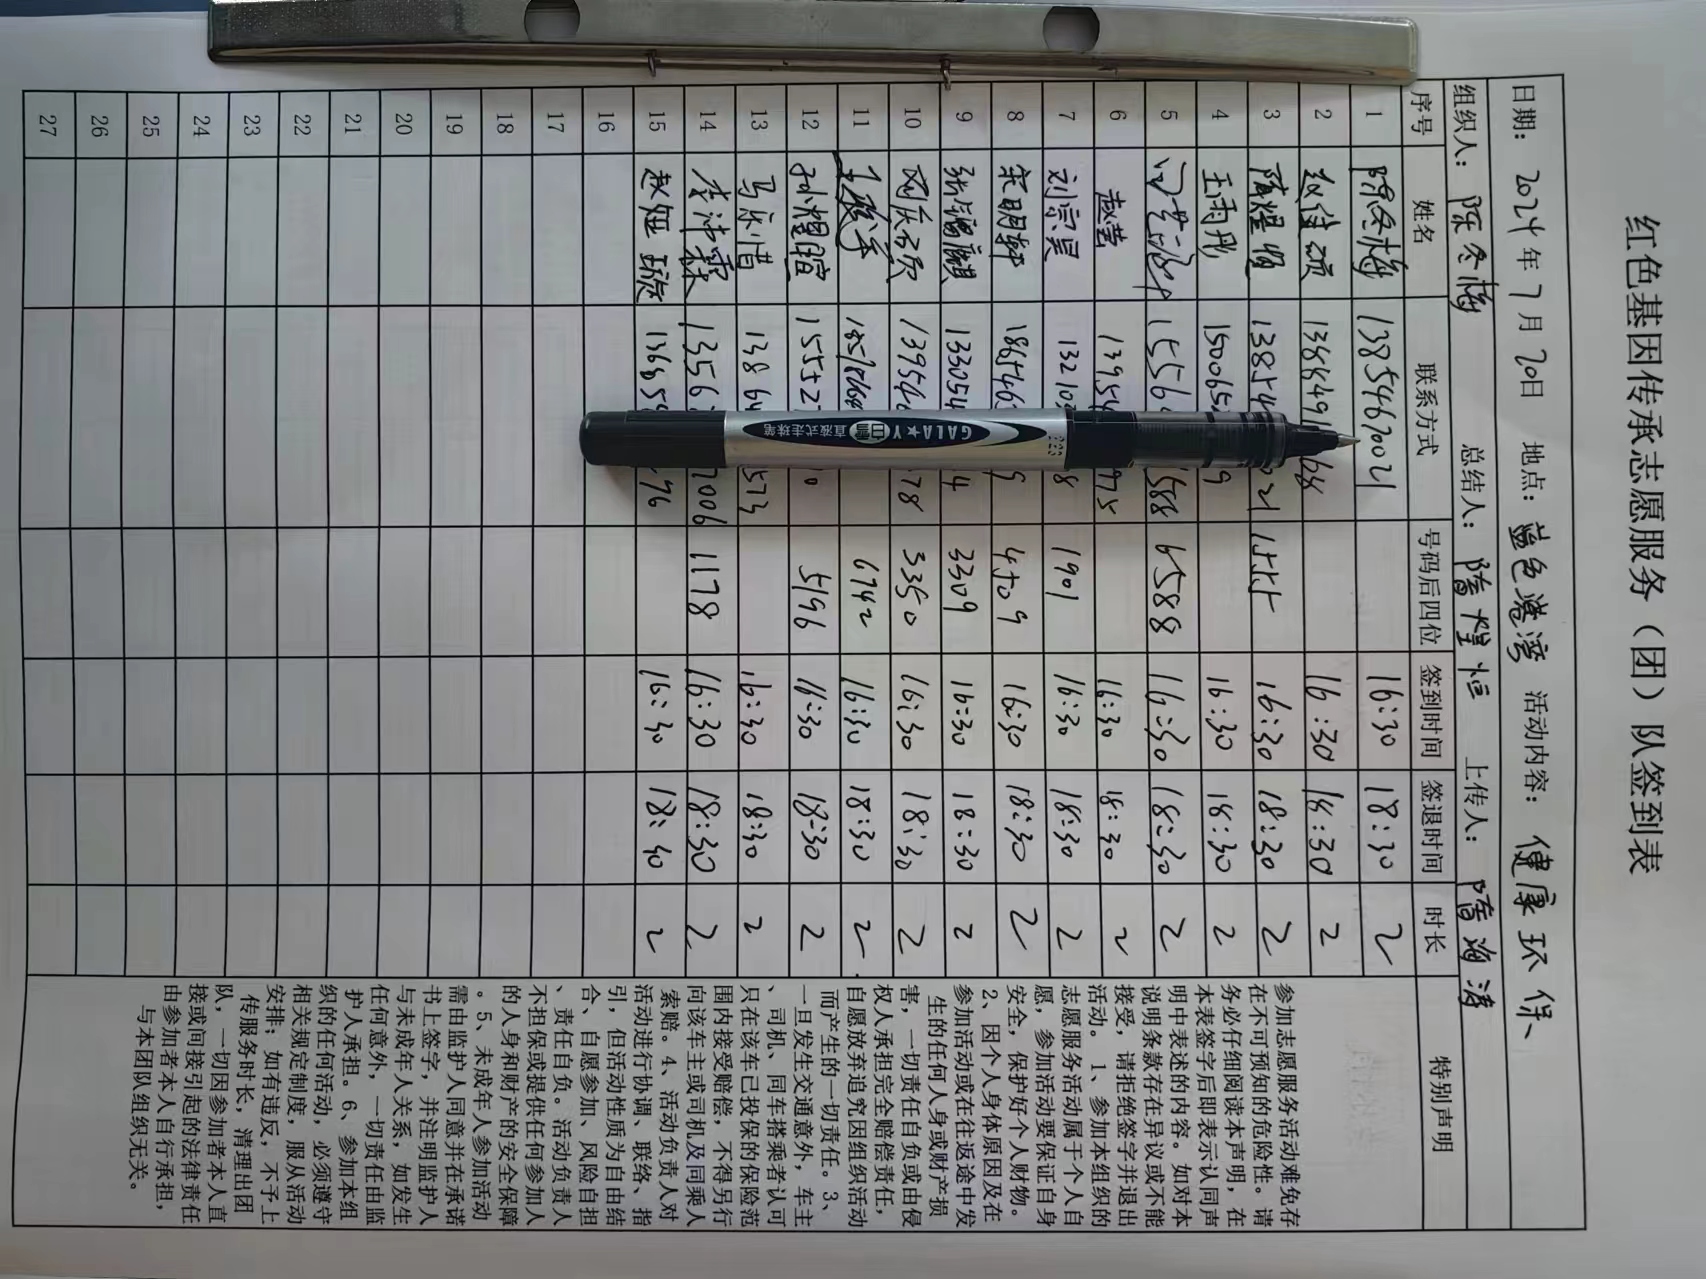 红色基因传承志愿服务（团）队签到表
日期： 2024 年 7 月 20日 地点：蓝色港湾 活动内容：健康环保
组织人：陈冬梅 总结人：隋煜恒 上传人：隋海涛
序号 姓名 联系方式 号码后四位 签到时间 签退时间 时长 特别声明
1 陈冬梅 13854670021 16:30 18:30 2
2 1388491 68 16:30 18:30 2
3 13854 021 1555 16:30 18:30 2
4 王雨彤 150065 9 16:30 18:30 2
5 1556 588 6588 16:30 18:30 2
6 赵芸 13954 975 16:30 18:30 2
7 刘宗昊 13210 8 1901 16:30 18:30 2
8 宋明轩 186546 9 4509 16:30 18:30 2
9 133054 4 3309 16:30 18:30 2
10 13954 78 3350 16:30 18:30 2
11 6742 16:30 18:30 2
12 孙煜暄 15552 0 5196 16:30 18:30 2
13 马乐惜 13864 573 16:30 18:30 2
14 李沛霖 1356 7006 1178 16:30 18:30 2
15 136 76 16:30 18:30 2
16
17
18
19
20
21
22
23
24
25
26
27
参加志愿服务活动难免存
在不可预知的危险性。请
务必仔细阅读本声明，在
本表签字后即表示认同声
明中表述的内容。如对本
说明条款存在异议或不能
接受，请拒绝签字并退出
活动。1、参加本组织的
志愿服务活动属于个人自
愿，参加活动要保证自身
安全，保护好个人财物。
2、因个人身体原因及在
参加活动或在往返途中发
生的任何人身或财产损
害，一切责任自负或由侵
权人承担完全赔偿责任，
自愿放弃追究因组织活动
而产生的一切责任。3、
一旦发生交通意外，车主
、司机、同车搭乘者认可
只在该车已投保的保险范
围内接受赔偿，不得另行
向该车主或司机及同乘人
索赔。4、活动负责人对
活动进行协调、联络、指
引，但活动性质为自由结
合、自愿参加、风险自担
、责任自负。活动负责人
不担保或提供任何参加人
的人身和财产的安全保障
。5、未成年人参加活动
需由监护人同意并在承诺
书上签字，并注明监护人
与未成年人关系，如发生
任何意外，一切责任由监
护人承担。6、参加本组
织的任何活动，必须遵守
相关规定制度，服从活动
安排；如有违反，不予上
传服务时长，清理出团
队，一切因参加者本人直
接或间接引起的法律责任
由参加者本人自行承担，
与本团队组织无关。
GALA★Y 白雪 直液式走珠笔